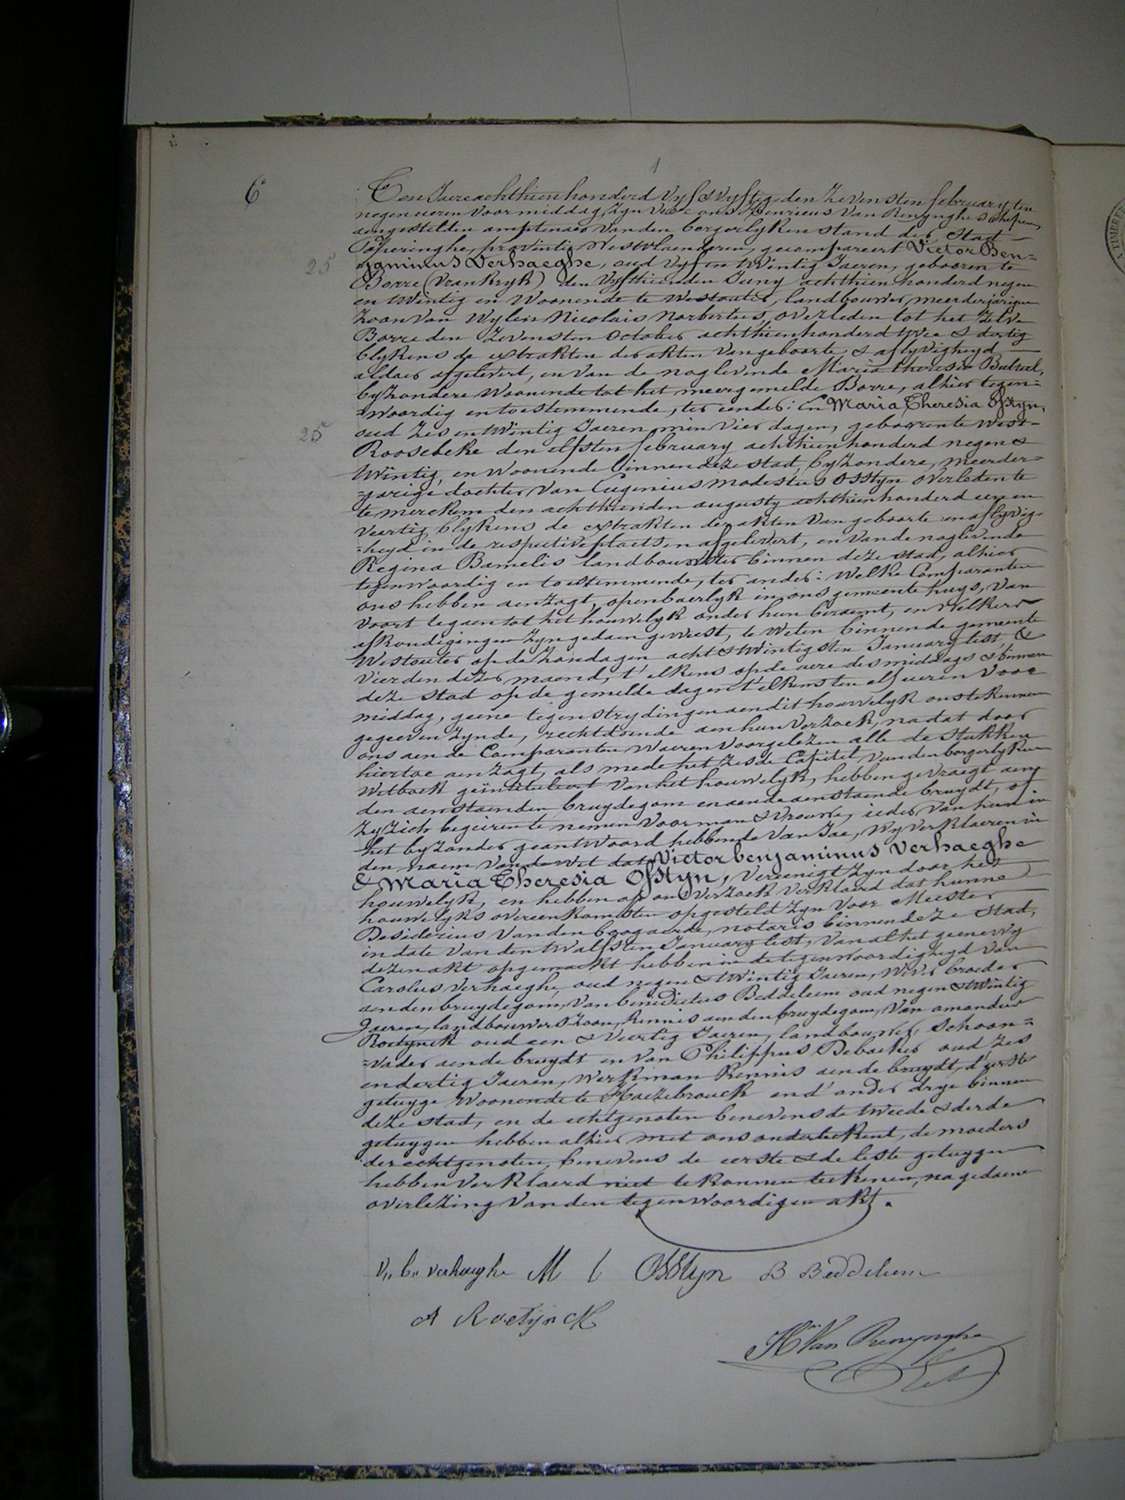 6
1
Ten Jaere achthien honderd vyf & vyftig den Zevensten february ten
negen ueren voor middag, zyn voor ons Henricus Van Renynghe schepen,
aengestelden amptenaer van den borgerlyken stand der Stad
Poperinghe, provintie Westvlaenderen, gecompareert Victor Ben=
25
=jaminus Verhaeghe, oud vyf en twintig Jaeren, gebooren te
Borre (Vrankryk) den vyfthienden Juny achthien honderd negen
en twintig en Woonende te Westouter, landbouwer, meerderjarigen
Zoon van wylen Nicolais Norbertus, overleden tot het Zelve
Borre den Zevensten October achthienhonderd twee & dertig
blykens de extrakten der akten van geboorte & aflyvigheyd
aldaer afgelevert, en van de naglevende Maria Theresia
byzondere Woonende tot het meergemelde Borre, alhier tegen=
=woordig en toestemmende, ter eender: En Maria Theresia Osstyn,
25
oud Zes en twintig Jaeren min vier dagen, geboorente West=
Roosebeke den elfsten february achthien honderd negen &
twintig, en Woonende binnen deze stad, byzondere, meerder=
=jarige dochter van Eugenius Modestus Osstyn overleden te
te Merckem den achthienden augusty achthienhonderd een en
veertig, blykens de extrakten der akten van geboorte en aflyvig=
=heyd in de respective plaetsen afgelevert, en van de naglevende
Regina Bamelis landbouwster binnen deze stad, alhier
tegenwoordig en toestemmende, ter ander: Welke Comparanten
ons hebben aenzogt, openbaerlyk in ons gemeente huys, van
voort te gaen tot het houwelyk onder hun beraemt, en Welkers
afkondigingen zyn gedaen geweest, te weten binnen de gemeente
Westouter op de Zondagen acht & twintigsten January lest, &
vierden dezer maend, t'elkens op de uere des middags & binnen
deze stad op de gemelde dagen t'elkens ten elf ueren voor
middag, geene tegenstrydingen aen dit houwelyk ons te kennen
gegeeven zynde, rechtdoende aen hun verzoek, na dat door
ons aen de Comparanten waeren voorgelezen alle de stukken
hiertoe aenzogt, als mede het Zesde Capitel van den borgerlyken
Wetboek geïntituleert van het houwelyk, hebben gevraegt aen
den aenstaenden bruydegom en aen de aenstaende bruydt, of
zy zich begeiren te nemen voor man & vrouwe, ieder van hun in
het byzonder geantwoord hebbende van Jae, Wy verklaeren in
den naem van de Wet dat Victor benjaminus Verhaeghe
& Maria Theresia Osstyn, vereenigt zyn door het
houwelyk, en hebben op ons verzoek verklaerd dat hunne
houwelyks overeenkomsten opgesteld zyn voor Meester
Desiderius Vanden Boogaerde, notaris binnen deze stad,
in date van den twalfsten January lest, van al het geene wy
dezen akt opgemaekt hebben in de tegenwoordigheyd van
Carolus Verhaeghe, oud negen & twintig Jaeren, Wever broeder
aen den bruydegom, van benedictus Beddeleem oud negen & twintig
Jaeren, landbouwers Zoon, kennis aen den bruydegom, van Amandus
Roetynck oud een & veertig Jaeren, landbouwer, schoon=
=vader aen de bruydt en van Philippus Debacker oud Zes
en dertig Jaeren, Werkman kennis aen de bruydt, d'eerste
getuyge Woonende te Haezebrouck en d'ander drye binnen
deze stad, en de echtgenoten benevens de tweede & derde
getuygen hebben alhier met ons onderteekent, de moeders
der echtgenoten, benevens de eerste & de leste getuygen
hebben verklaerd niet te konnen teekenen, na gedaene
overlezing van den tegenwoordigen akt.
v,, b,, verhaeghe M t Osstyn B Beddeleem
A Roetynck
Hri Van Renynghe